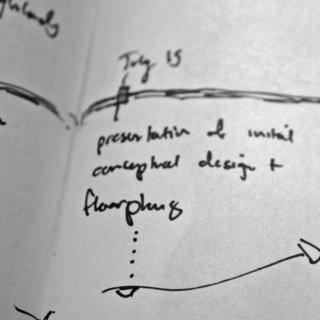 July 15
presentation of initial
conceptual design +
floorplans